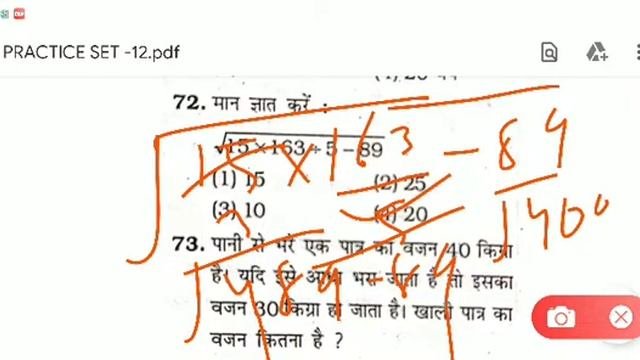 PRACTICE SET -12.pdf
72. मान ज्ञात करें :
√15 × 163 ÷ 5 – 89
(1) 15 (2) 25
(3) 10 (4) 20
√15 × 163 – 89
3
√489-89
√400
73. पानी से भरे एक पात्र का वजन 40 किग्रा
है। यदि इसे आधा भरा जाता है तो इसका
वजन 30 किग्रा हो जाता है। खाली पात्र का
वजन कितना है ?